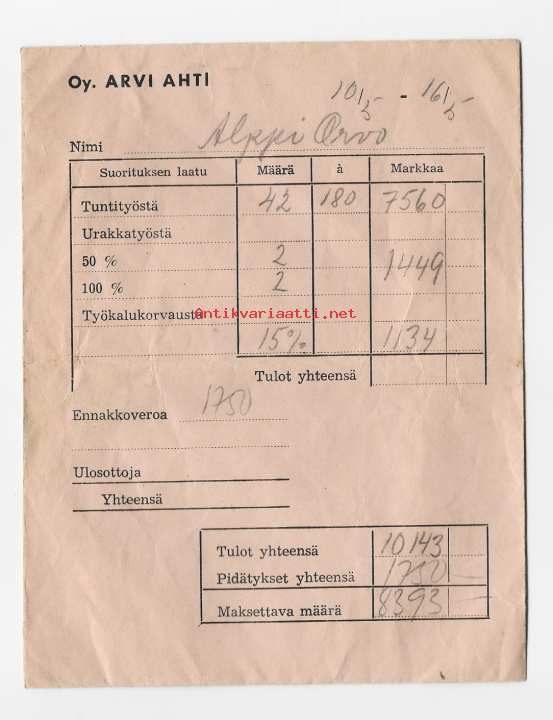 Oy. ARVI AHTI
10/5 - 16/5
Nimi Alppi Orvo
Suorituksen laatu Määrä à Markkaa
Tuntityöstä 42 180 7560
Urakkatyöstä
50 % 2 1449
100 % 2
Työkalukorvausta
Antikvariaatti.net
15% 1134
Tulot yhteensä
Ennakkoveroa 1750
Ulosottoja
Yhteensä
Tulot yhteensä 10143
Pidätykset yhteensä 1750 —
Maksettava määrä 8393 —